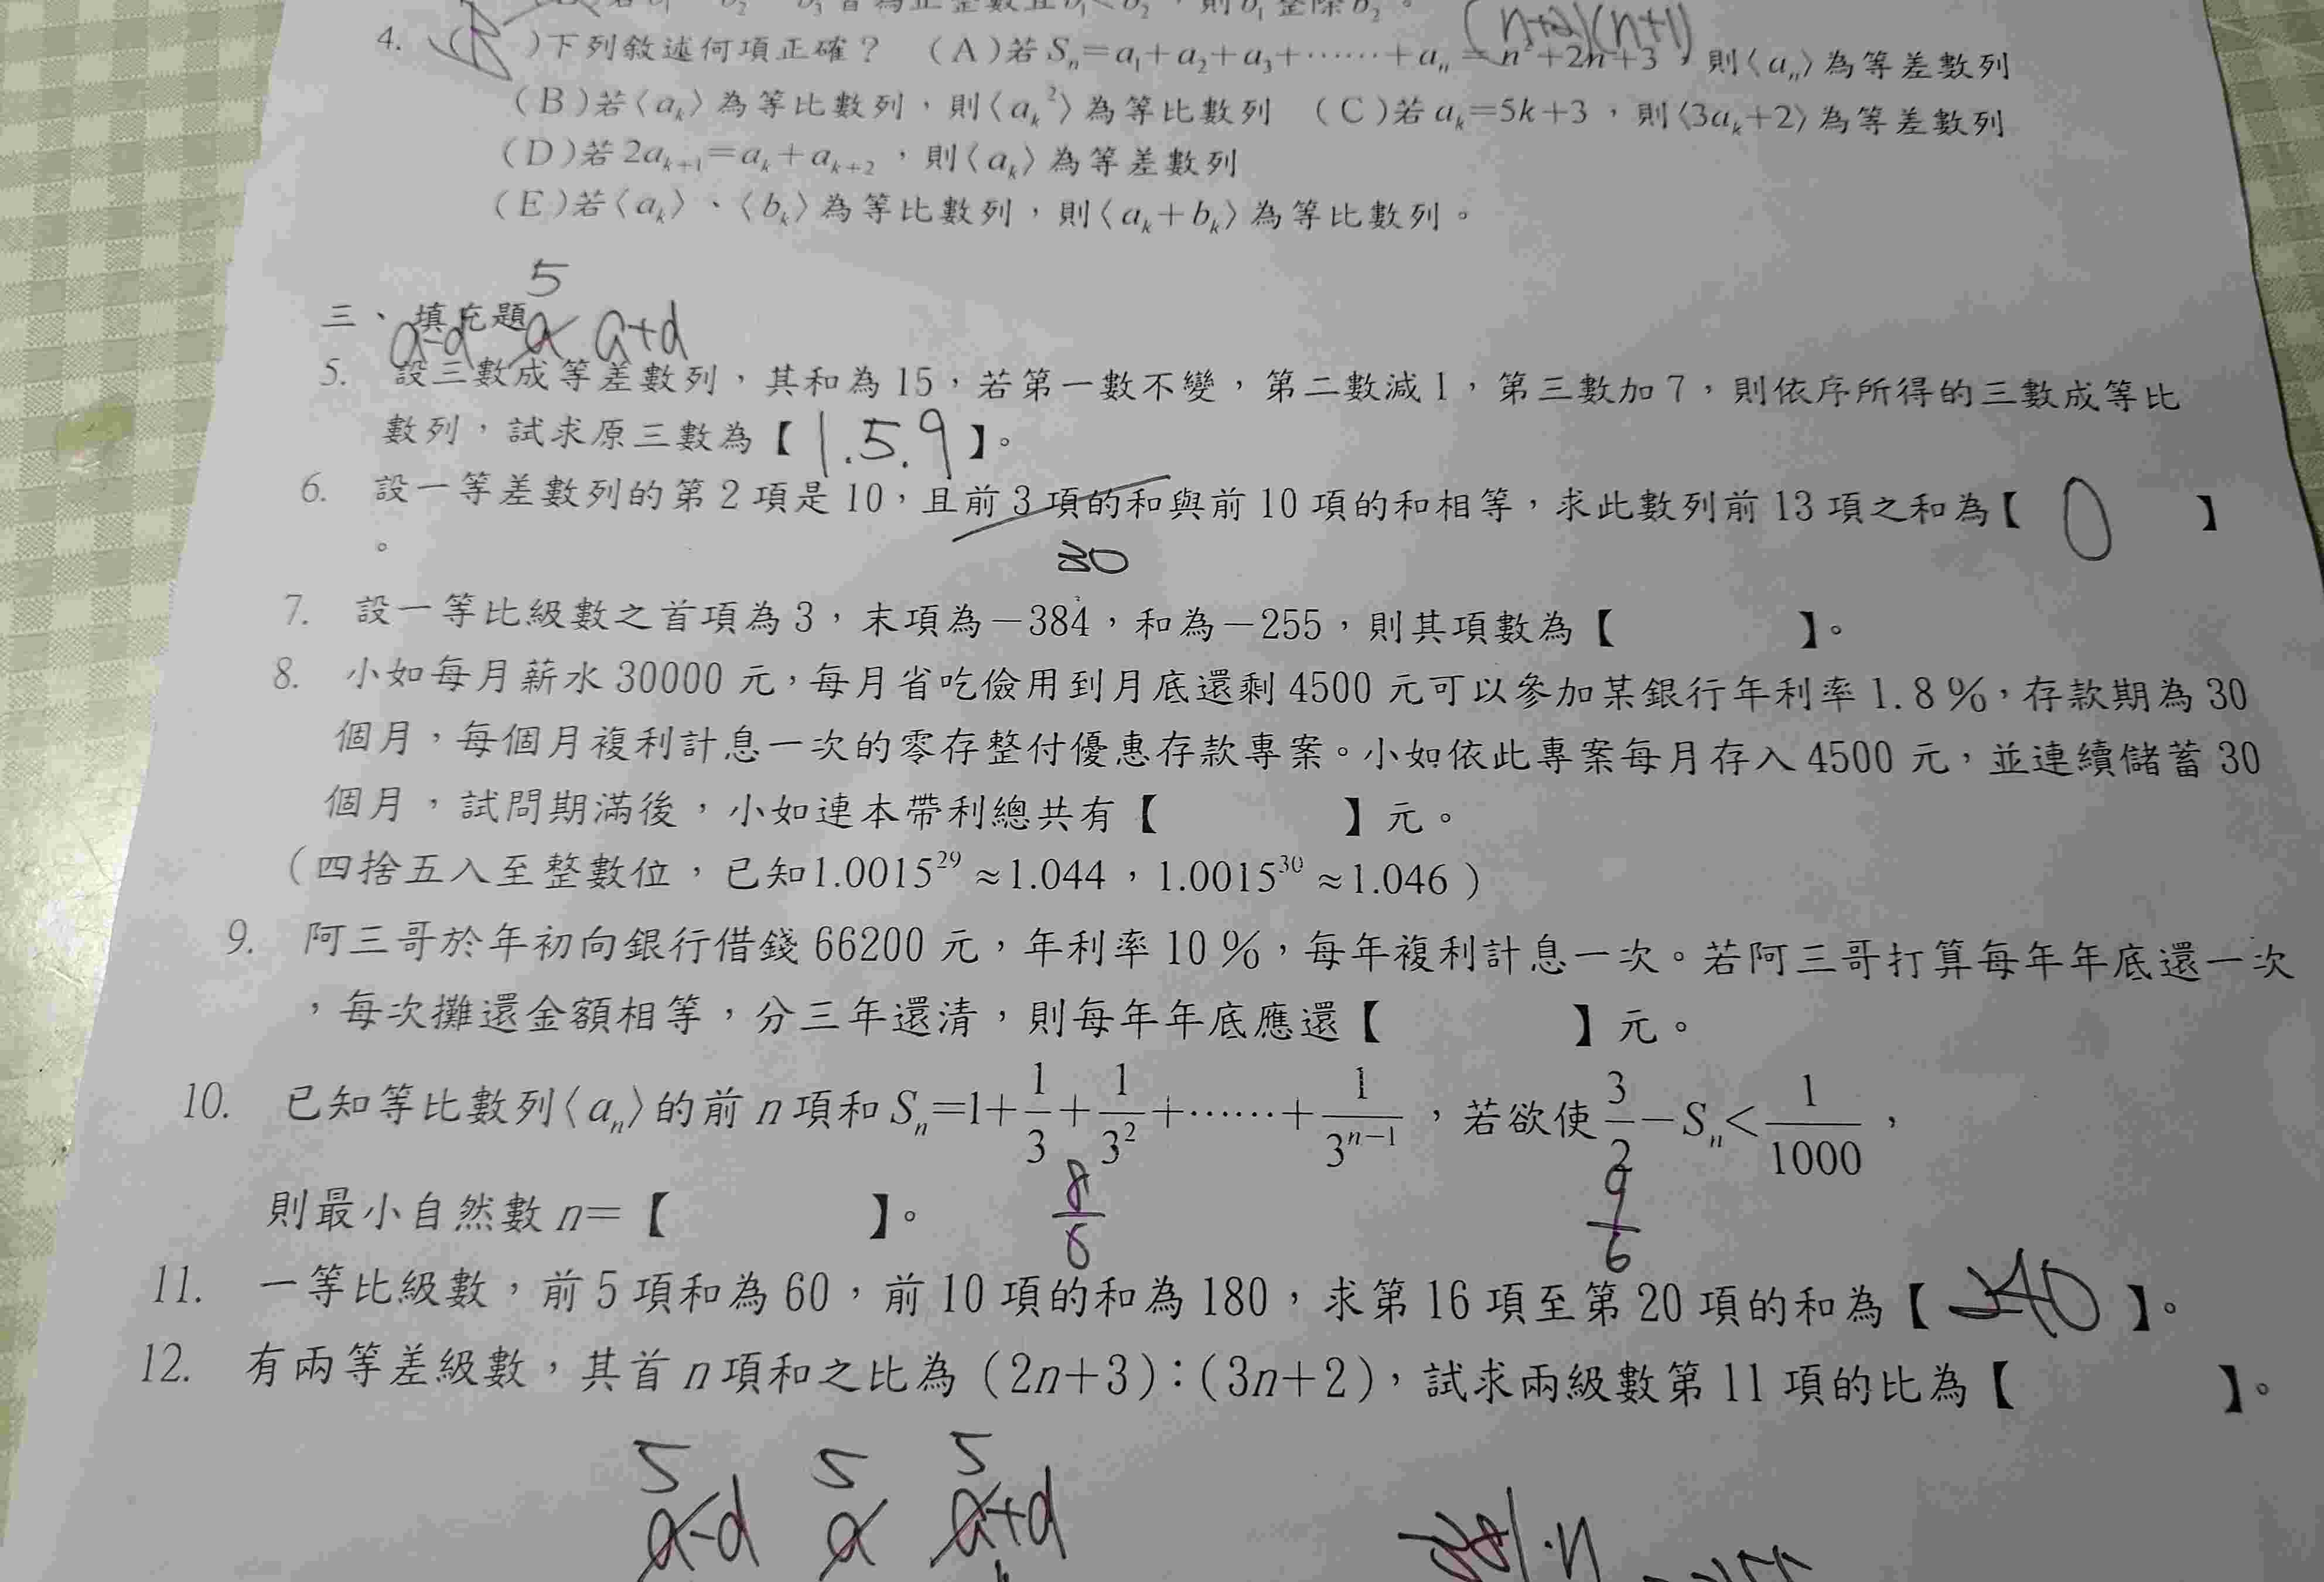 4. ( )下列敘述何項正確？ (A)若 Sₙ=a₁+a₂+a₃+……+aₙ=n²+2n+3，則⟨aₙ⟩為等差數列
(n+2)(n+1)
(B)若⟨aₖ⟩為等比數列，則⟨aₖ²⟩為等比數列 (C)若 aₖ=5k+3，則⟨3aₖ+2⟩為等差數列
(D)若 2aₖ₊₁=aₖ+aₖ₊₂，則⟨aₖ⟩為等差數列
(E)若⟨aₖ⟩、⟨bₖ⟩為等比數列，則⟨aₖ+bₖ⟩為等比數列。
5
三、填充題
a-d a a+d
5. 設三數成等差數列，其和為 15，若第一數不變，第二數減 1，第三數加 7，則依序所得的三數成等比
數列，試求原三數為【 1.5.9 】。
6. 設一等差數列的第 2 項是 10，且前 3 項的和與前 10 項的和相等，求此數列前 13 項之和為【 0 】
。
30
7. 設一等比級數之首項為 3，末項為－384，和為－255，則其項數為【 】。
8. 小如每月薪水 30000 元，每月省吃儉用到月底還剩 4500 元可以參加某銀行年利率 1.8％，存款期為 30
個月，每個月複利計息一次的零存整付優惠存款專案。小如依此專案每月存入 4500 元，並連續儲蓄 30
個月，試問期滿後，小如連本帶利總共有【 】元。
(四捨五入至整數位，已知1.0015²⁹≈1.044，1.0015³⁰≈1.046)
9. 阿三哥於年初向銀行借錢 66200 元，年利率 10％，每年複利計息一次。若阿三哥打算每年年底還一次
，每次攤還金額相等，分三年還清，則每年年底應還【 】元。
10. 已知等比數列⟨aₙ⟩的前 n 項和 Sₙ=1+1/3+1/3²+……+1/3ⁿ⁻¹，若欲使 3/2－Sₙ<1/1000，
則最小自然數 n=【 】。
8/6 9/6
11. 一等比級數，前 5 項和為 60，前 10 項的和為 180，求第 16 項至第 20 項的和為【 240 】。
12. 有兩等差級數，其首 n 項和之比為 (2n+3)：(3n+2)，試求兩級數第 11 項的比為【 】。
5 5 5
a-d a a+d